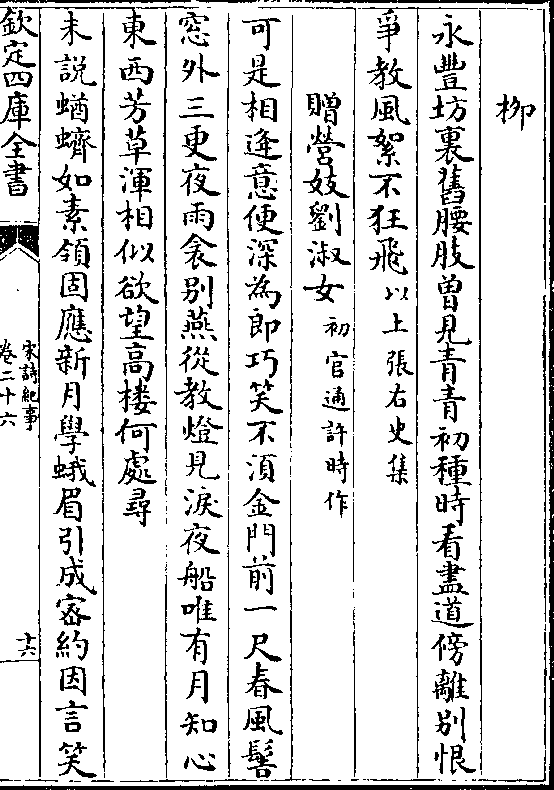 柳
永豐坊裏舊腰肢曽見青青初種時看盡道傍離别恨
爭教風絮不狂飛以上張右史集
贈營妓劉淑女初官通許時作
可是相逢意便深為郎巧笑不湏金門前一尺春風髻
窓外三更夜雨衾别燕從教燈見淚夜船唯有月知心
東西芳草渾相似欲望高樓何處尋
未説蝤蠐如素領固應新月學蛾眉引成宻約因言笑
欽定四庫全書
宋詩紀事
卷二十六
十六